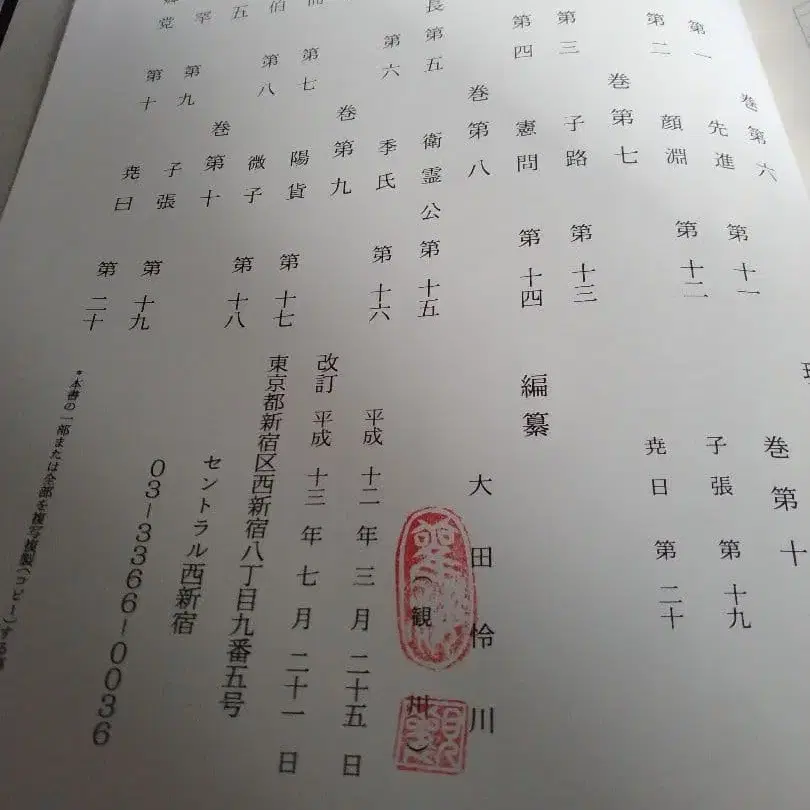 第一
第二
第三
第四
長 第五
第六
第七
伯 第八
五
第九
党 第十
巻第六
先進 第十一
顔淵 第十二
巻第七
子路 第十三
憲問 第十四
巻第八
衛霊公 第十五
季氏 第十六
巻第九
陽貨 第十七
微子 第十八
巻第十
子張 第十九
尭曰 第二十
巻第十
子張 第十九
尭曰 第二十
編纂
大田怜川
（観川）
平成十二年三月二十五日
改訂 平成十三年七月二十一日
東京都新宿区西新宿八丁目九番五号
セントラル西新宿
03-3366-0036
*本書の一部または全部を複写複製(コピー)する